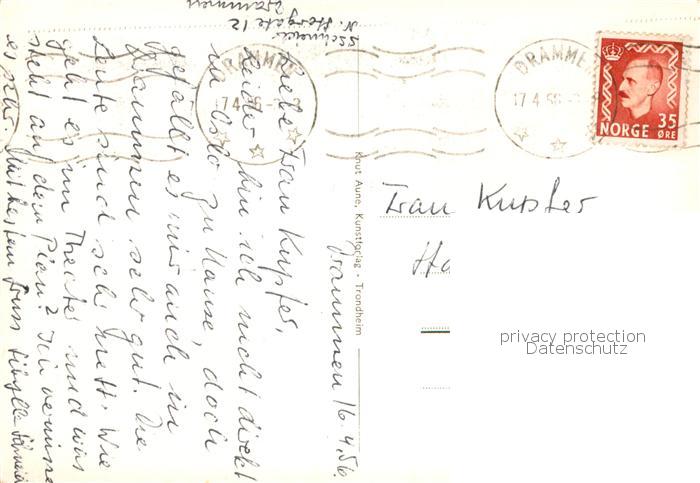 Drammen 16.4.56.
Liebe Frau Kupfer,
Leider bin ich nicht direkt
in Oslo zu Hause, doch
gefällt es mir auch in
Drammen sehr gut. Die
Leute sind sehr nett. Wie
geht es im Theater und was
steht auf dem Plan? Ich vermisse
es sehr. Mit besten Gruss Sibylle
N. Storgate 12
Drammen
Knut Aune, Kunstforlag - Trondheim
DRAMMEN
17.4.56
DRAMMEN
17.4.56
NORGE 35
ØRE
Frau Kupfer
privacy protection
Datenschutz